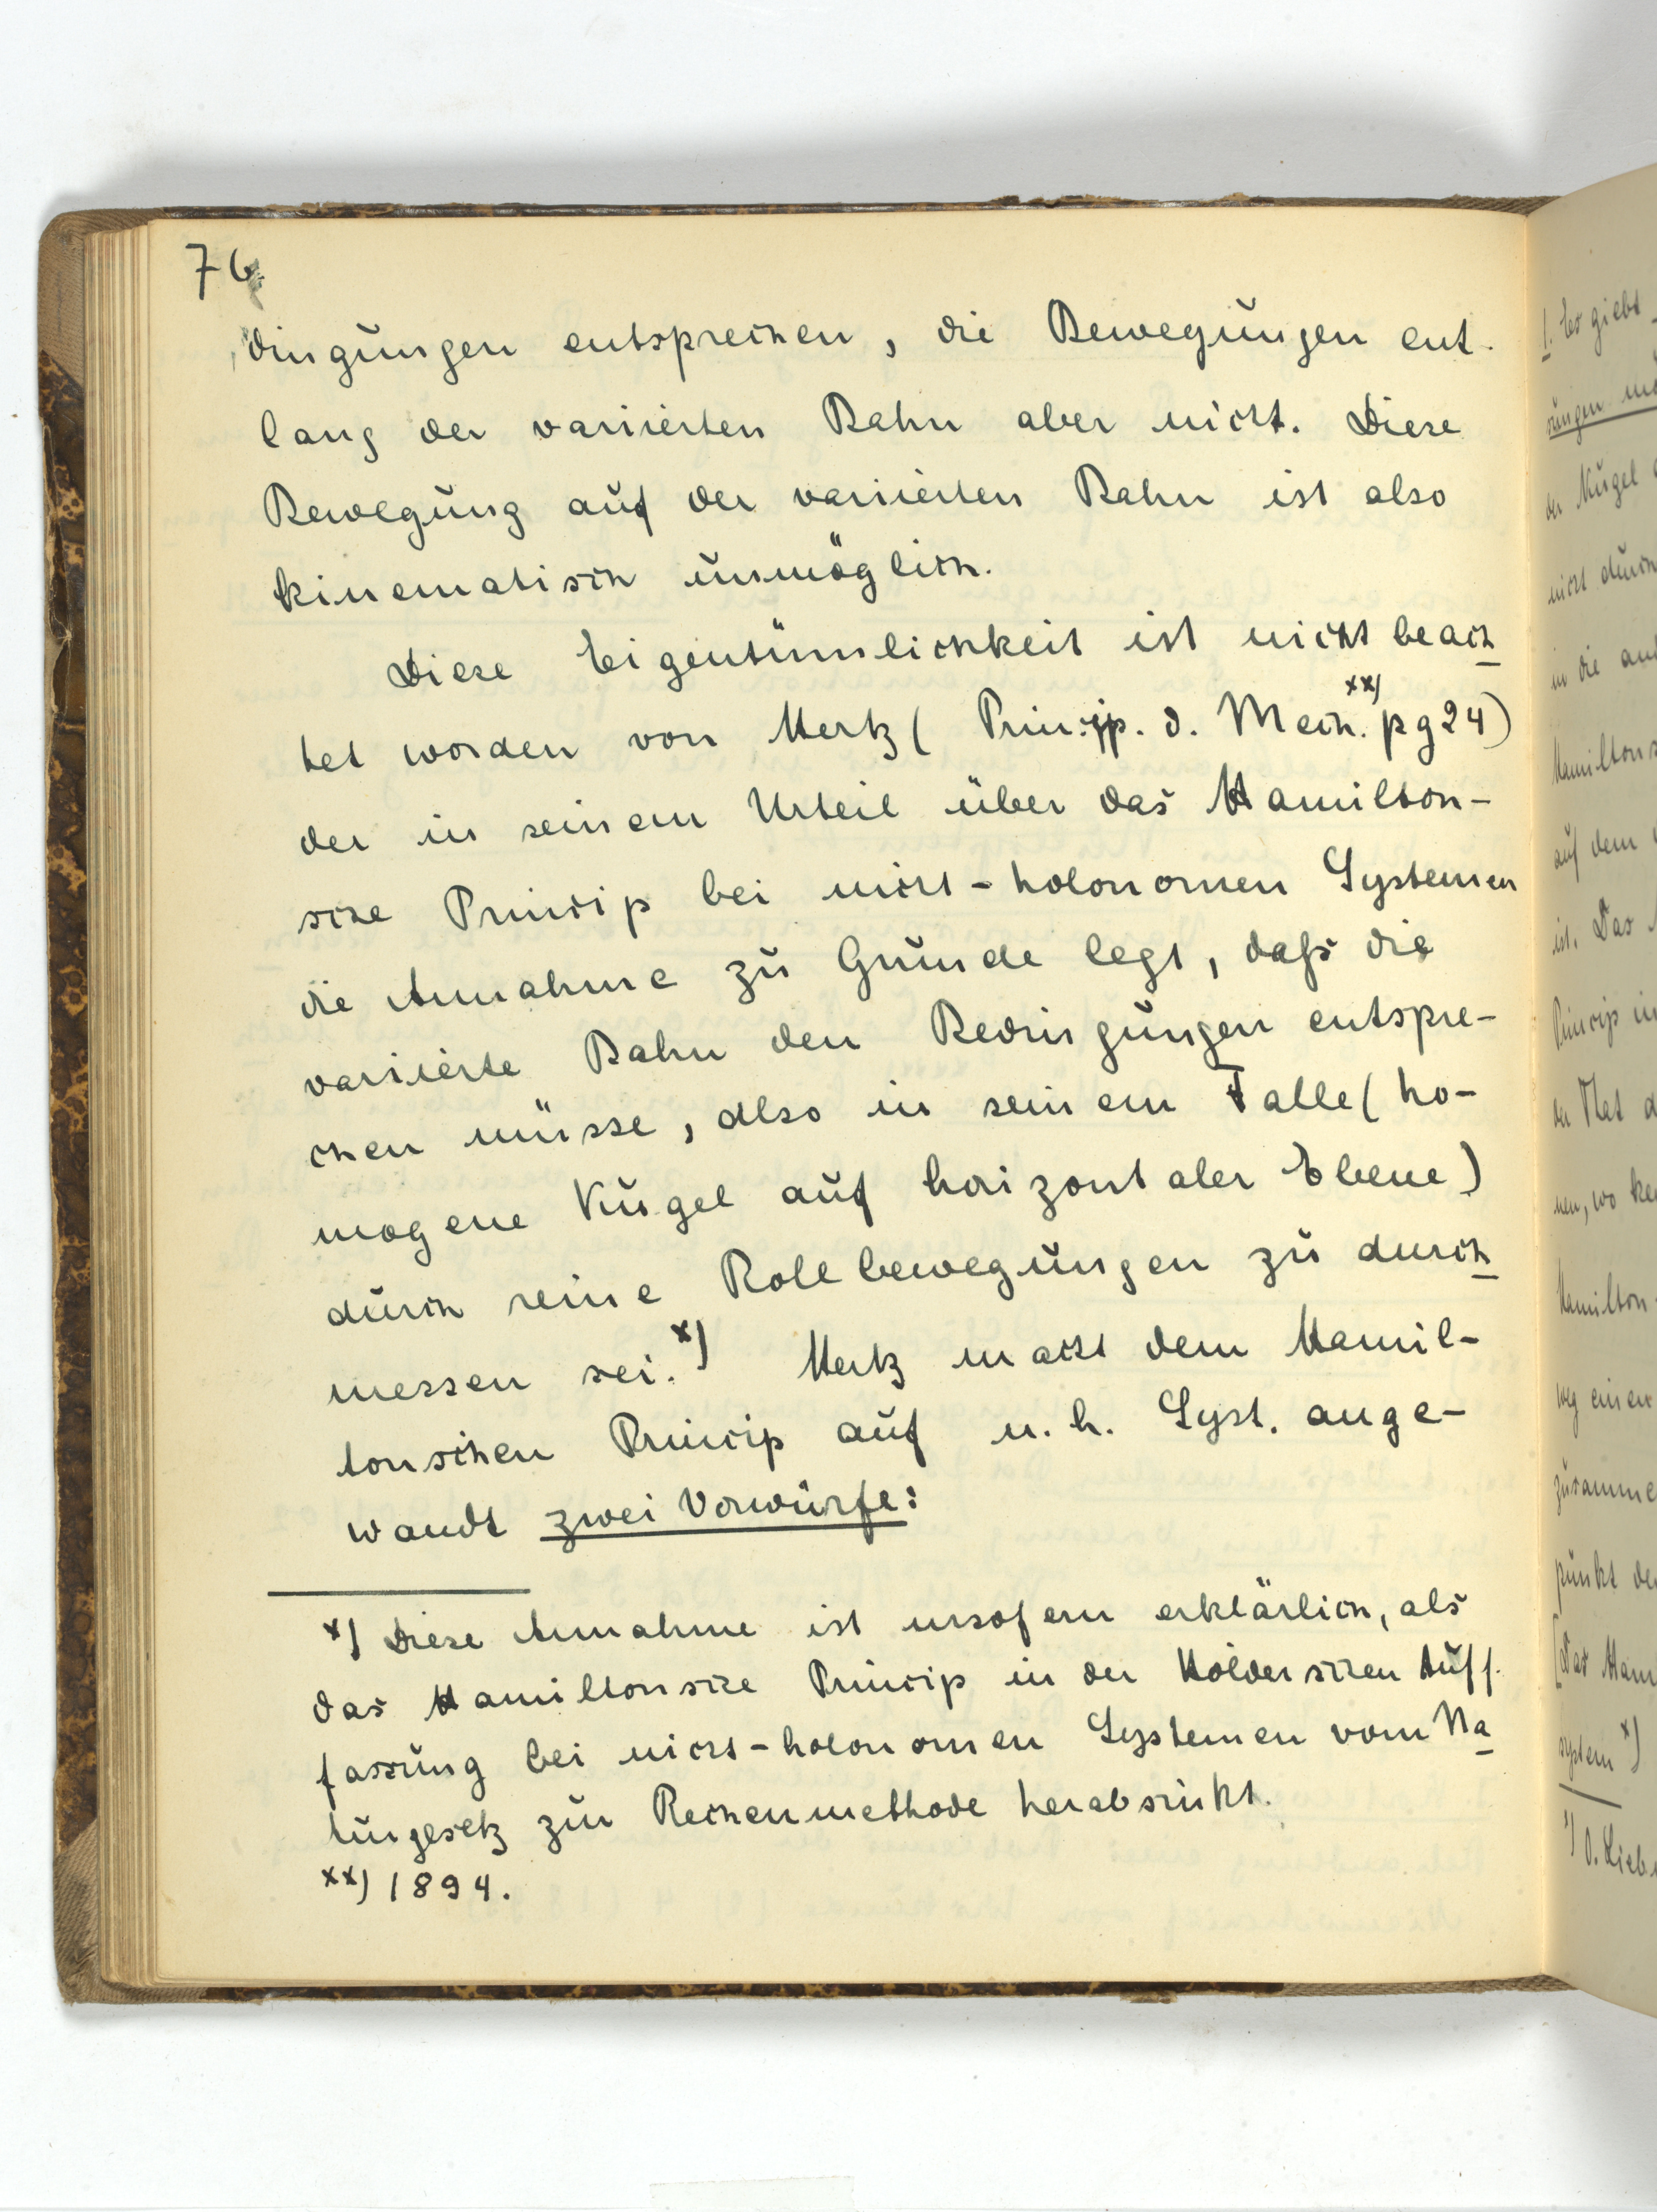 76
dingungen entsprechen, die Bewegungen ent-
lang der variierten Bahn aber nicht. Diese
Bewegung auf der variierten Bahn ist also
kinematisch unmöglich.
Diese Eigentümlichkeit ist nicht beach
tet worden von Hertz (Princip. d. Mech. xx) pg 24)
der in seinem Urteil über das Hamilton-
sche Princip bei nicht-holonomen Systemen
die Annahme zu Grunde legt, daß die
variierte Bahn den Bedingungen entspre-
chen müsse, also in seinem Falle (ho-
mogene Kugel auf horizontaler Ebene)
durch reine Rollbewegungen zu durch
messen sei. x) Hertz macht dem Hamil-
tonschen Princip auf n. h. Syst. ange-
wandt zwei Vorwürfe:
x) Diese Annahme ist insofern erklärlich, als
das Hamiltonsche Princip in der Hölderschen Auff-
fassung bei nicht-holonomen Systemen vom Na
turgesetz zur Rechenmethode herabsinkt.
xx) 1894.
1. Es giebt
der Kugel
nicht durch
in die
Hamiltons
auf dem
ist. Das
Princip in
der That d
nen, wo
Hamilton-
weg einer
zusamme
punkt de
[Das Ham
system x)
x) O.